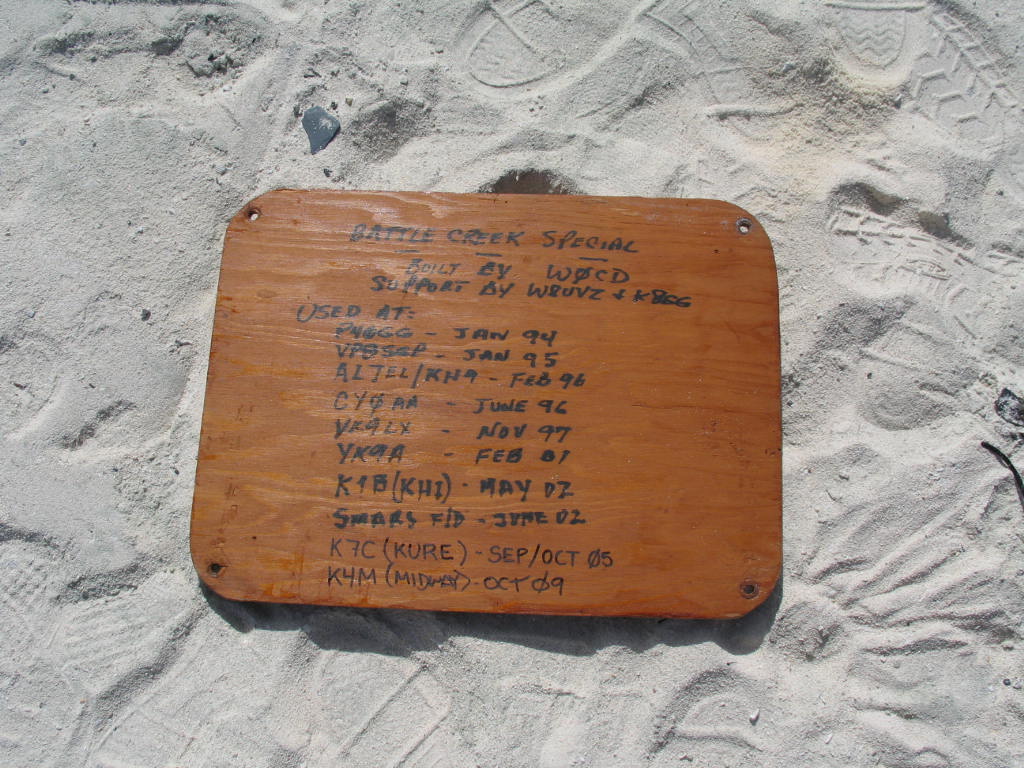 BATTLE CREEK SPECIAL
BUILT BY WØCD
SUPPORT BY W8UVZ + K8GG
USED AT:
P40GG - JAN 94
VP8SGP - JAN 95
AL7EL/KH9 - FEB 96
CYØAA - JUNE 96
VK9LX - NOV 97
FEB 01
K1B(KH1) - MAY 02
SMARS F/D - JUNE 02
K7C (KURE) - SEP/OCT Ø5
K4M (MIDWAY) - OCT Ø9